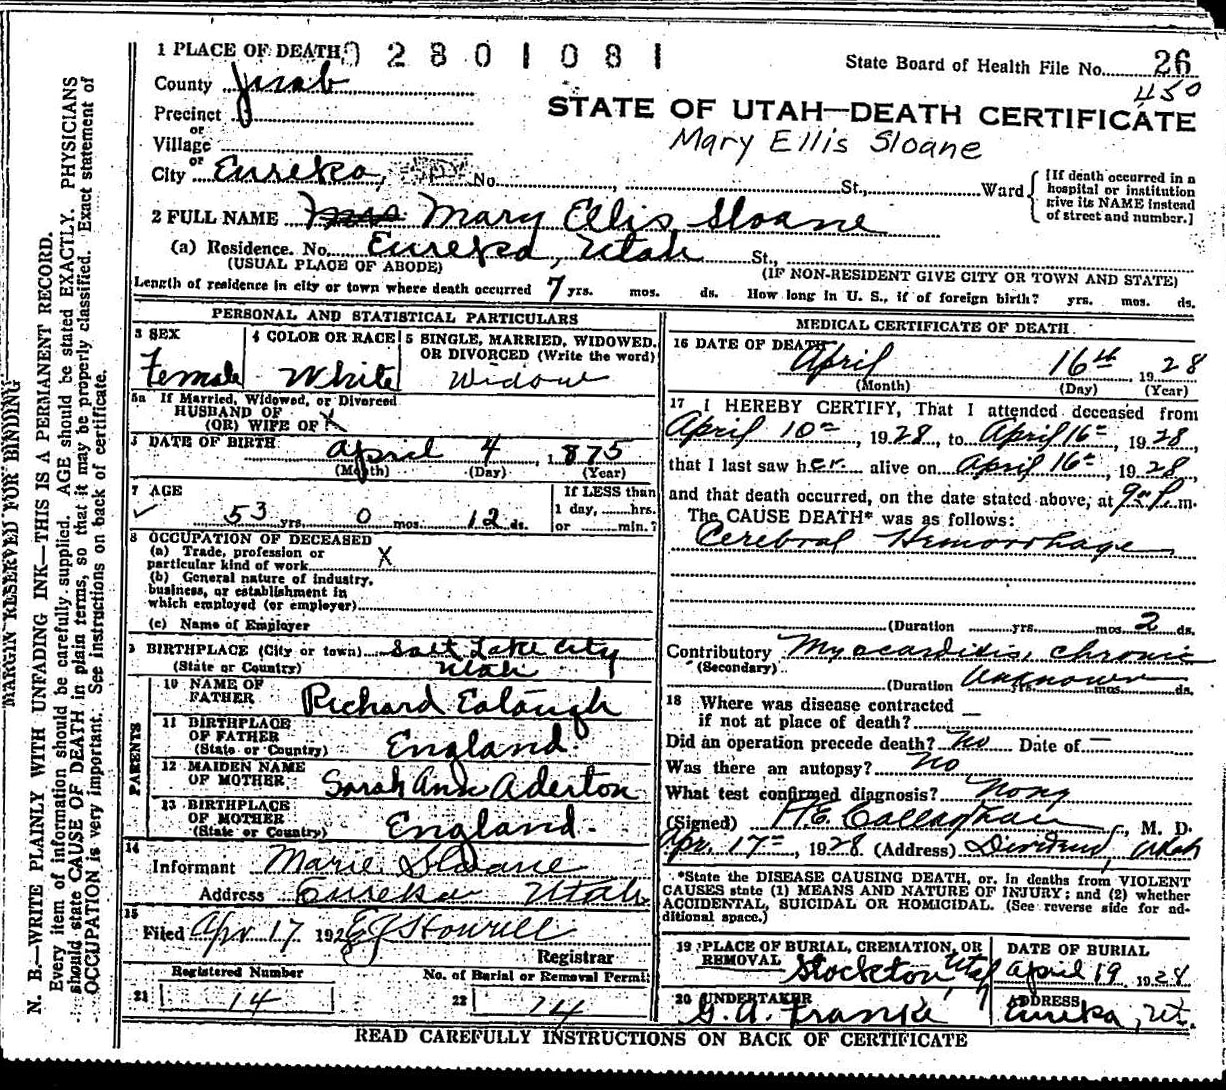 1 PLACE OF DEATH 02801081
State Board of Health File No. 26
450
County Juab
STATE OF UTAH—DEATH CERTIFICATE
Precinct
or
Village
Mary Ellis Sloane
or
City Eureka, No. St., Ward
[If death occurred in a hospital or institution give its NAME instead of street and number.]
2 FULL NAME Mrs Mary Ellis Sloane
(a) Residence. No. Eureka, Utah St.,
(USUAL PLACE OF ABODE) (IF NON-RESIDENT GIVE CITY OR TOWN AND STATE)
Length of residence in city or town where death occurred 7 yrs. mos. ds. How long in U. S., if of foreign birth? yrs. mos. ds.
PERSONAL AND STATISTICAL PARTICULARS
3 SEX 4 COLOR OR RACE 5 SINGLE, MARRIED, WIDOWED, OR DIVORCED (Write the word)
Female White Widow
5a If Married, Widowed, or Divorced
HUSBAND OF
(OR) WIFE OF X
DATE OF BIRTH April 4, 1875
(Month) (Day) (Year)
7 AGE
If LESS than
1 day, hrs.
or min.?
53 yrs. 0 mos. 12 ds.
8 OCCUPATION OF DECEASED
(a) Trade, profession or
particular kind of work X
(b) General nature of industry,
business, or establishment in
which employed (or employer)
(c) Name of Employer
9 BIRTHPLACE (City or town) Salt Lake City
(State or Country) Utah
PARENTS
10 NAME OF
FATHER Richard
11 BIRTHPLACE
OF FATHER
(State or Country) England.
12 MAIDEN NAME
OF MOTHER Sarah Ann Aderton
13 BIRTHPLACE
OF MOTHER
(State or Country) England.
14
Informant Marie Sloane
Address Eureka Utah
15
Filed Apr 17 1928
Registrar
Registered Number No. of Burial or Removal Permit
21 14 22 74
MEDICAL CERTIFICATE OF DEATH
16 DATE OF DEATH April 16th 1928
(Month) (Day) (Year)
17 I HEREBY CERTIFY, That I attended deceased from
April 10th, 1928, to April 16th, 1928,
that I last saw her alive on April 16th, 1928
and that death occurred, on the date stated above, at P. m.
The CAUSE DEATH* was as follows:
Cerebral Hemorrhage
(Duration yrs. mos. 2 ds.
Contributory Myocarditis, chronic
(Secondary)
(Duration Unknown yrs. mos. ds.
18 Where was disease contracted
if not at place of death? —
Did an operation precede death? No Date of —
Was there an autopsy? No
What test confirmed diagnosis? None
(Signed) H.E. Callaghan, M. D.
Apr. 17th, 1928 (Address) Dividend, Utah
*State the DISEASE CAUSING DEATH, or, in deaths from VIOLENT
CAUSES state (1) MEANS AND NATURE OF INJURY; and (2) whether
ACCIDENTAL, SUICIDAL OR HOMICIDAL. (See reverse side for ad-
ditional space.)
19 PLACE OF BURIAL, CREMATION, OR
REMOVAL Stockton, Utah
DATE OF BURIAL
April 19 1928
20 UNDERTAKER
G. A. Franke
ADDRESS
Eureka, Ut.
READ CAREFULLY INSTRUCTIONS ON BACK OF CERTIFICATE
MARGIN RESERVED FOR BINDING
N. B.—WRITE PLAINLY WITH UNFADING INK—THIS IS A PERMANENT RECORD.
Every item of information should be carefully supplied. AGE should be stated EXACTLY. PHYSICIANS
should state CAUSE OF DEATH in plain terms, so that it may be properly classified. Exact statement of
OCCUPATION is very important. See instructions on back of certificate.